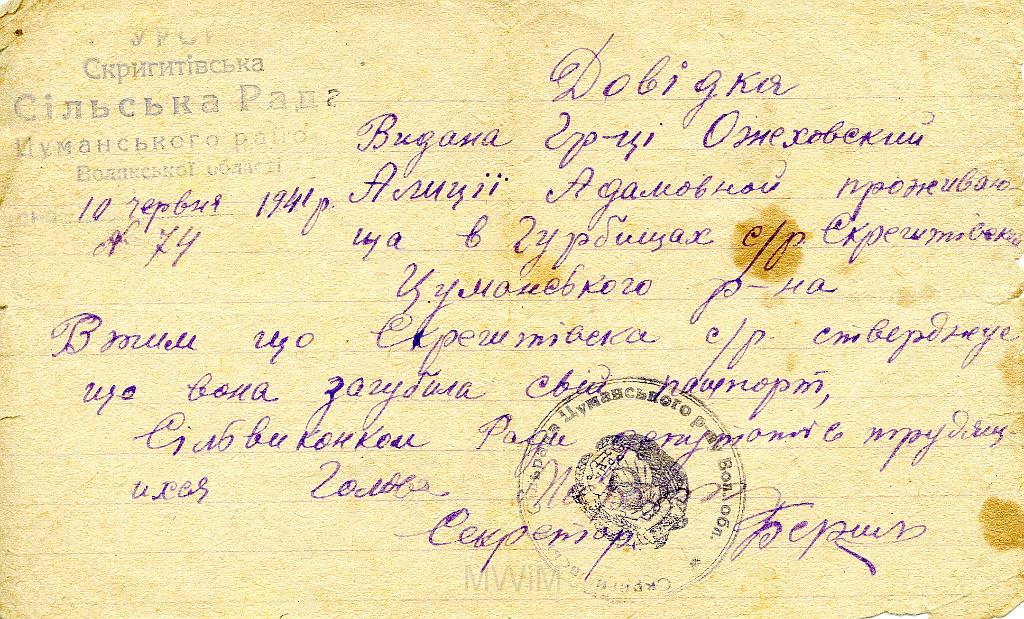 УРСР
Скригитівська
Сільська Рада
Цуманського району
Волинської області
10 червня 1941 р.
№ 74
Довідка
Видана Гр-ці Ожеховский
Алиції Адамовной проживаю-
ща в Гурбищах с/р. Скрегитівский
Цуманського р-на
В тим що Скрегитівска с/р. стверджує
що вона загубила свій паспорт,
Сільвиконком Ради депутатів трудящ-
ихся Голова
Секретар
Сільрада Цуманського р-ну Вол. обл.
MWiM